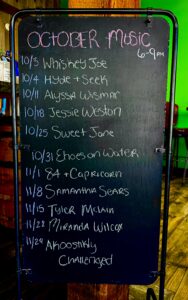 October Music
6-9PM
10/3 Whiskey Joe
10/4 Hyde + Seek
10/11 Alyssa Wismar
10/18 Jessie Weston
10/25 Sweet Jane
10/31 Echoes on Water
11/1 84 + Capricorn
11/8 Samantha Sears
11/15 Tyler McLain
11/22 Miranda Wilcox
11/29 Akoostikly
Challenged